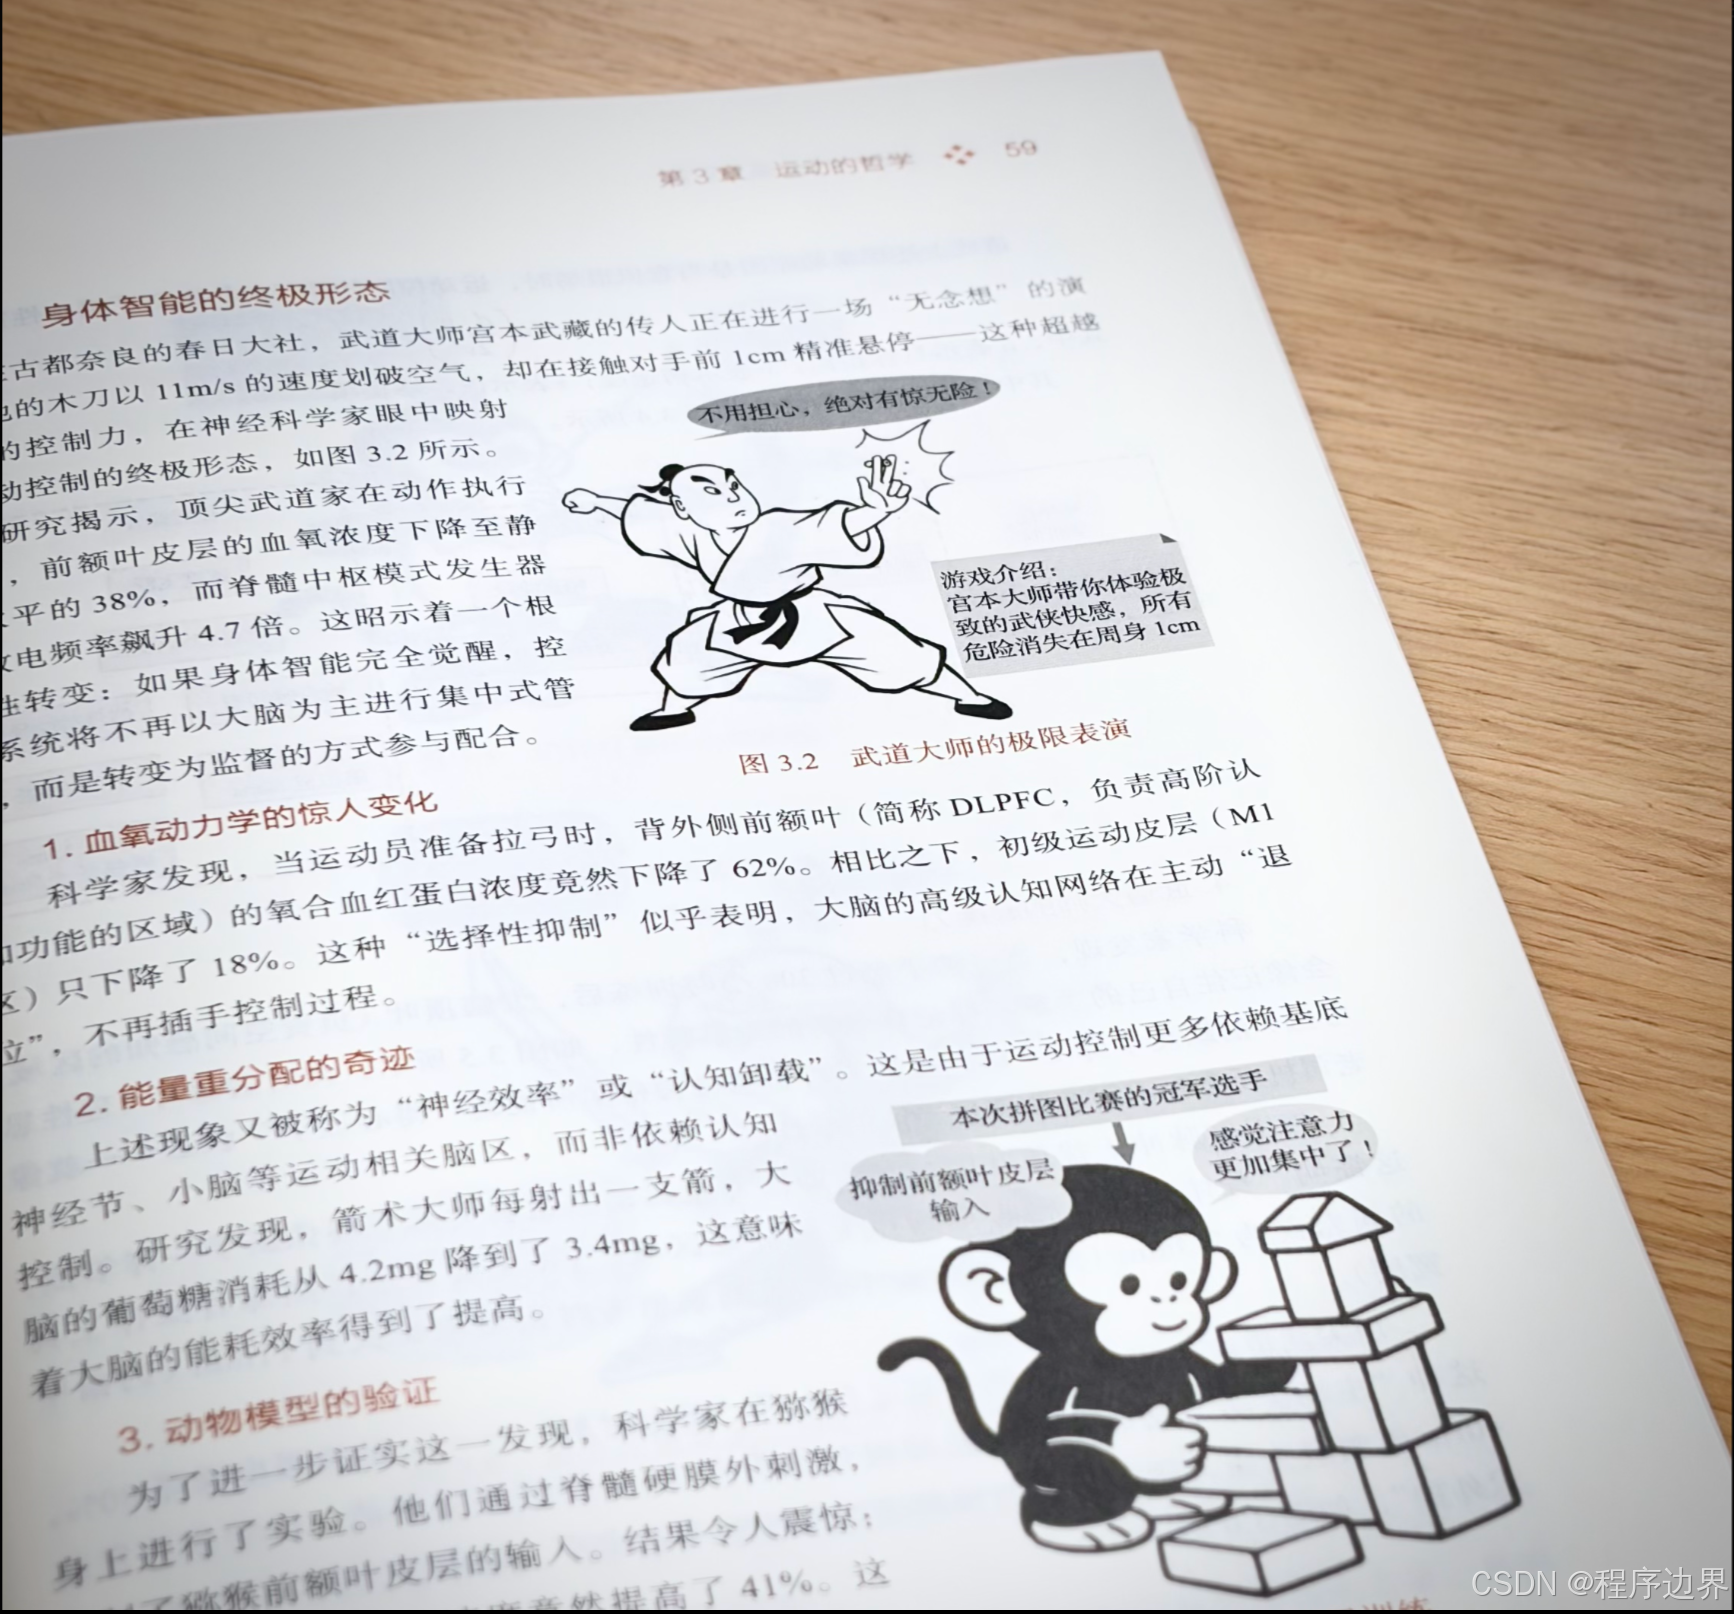 第3章 运动的哲学 59
身体智能的终极形态
古都奈良的春日大社，武道大师宫本武藏的传人正在进行一场“无念想”的演
的木刀以 11m/s 的速度划破空气，却在接触对手前 1cm 精准悬停——这种超越
的控制力，在神经科学家眼中映射
动控制的终极形态，如图 3.2 所示。
研究揭示，顶尖武道家在动作执行
，前额叶皮层的血氧浓度下降至静
平的 38%，而脊髓中枢模式发生器
电频率飙升 4.7 倍。这昭示着一个根
性转变：如果身体智能完全觉醒，控
系统将不再以大脑为主进行集中式管
，而是转变为监督的方式参与配合。
不用担心，绝对有惊无险！
游戏介绍：
宫本大师带你体验极
致的武侠快感，所有
危险消失在周身 1cm
图 3.2 武道大师的极限表演
1. 血氧动力学的惊人变化
科学家发现，当运动员准备拉弓时，背外侧前额叶（简称 DLPFC，负责高阶认
知功能的区域）的氧合血红蛋白浓度竟然下降了 62%。相比之下，初级运动皮层（M1
区）只下降了 18%。这种“选择性抑制”似乎表明，大脑的高级认知网络在主动“退
位”，不再插手控制过程。
2. 能量重分配的奇迹
上述现象又被称为“神经效率”或“认知卸载”。这是由于运动控制更多依赖基底
神经节、小脑等运动相关脑区，而非依赖认知
控制。研究发现，箭术大师每射出一支箭，大
脑的葡萄糖消耗从 4.2mg 降到了 3.4mg，这意味
着大脑的能耗效率得到了提高。
本次拼图比赛的冠军选手
抑制前额叶皮层
输入
感觉注意力
更加集中了！
3. 动物模型的验证
为了进一步证实这一发现，科学家在猕猴
身上进行了实验。他们通过脊髓硬膜外刺激，
了猕猴前额叶皮层的输入。结果令人震惊：
竟然提高了 41%。这
训练
CSDN @程序边界